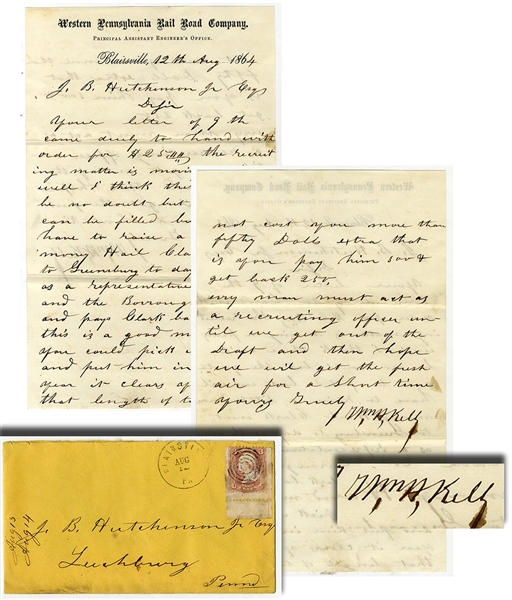 Western Pennsylvania Rail Road Company.
PRINCIPAL ASSISTANT ENGINEER'S OFFICE.
Blairsville, 12th Aug 1864
J. B. Hutchinson Jr Esq
D Sir
Your letter of 9th
came duely to hand with
order for $25 the recruit
ing matter is movin
well I think the
be no doubt but
can be filled b
have to raise a
money Hail Cla
to Greensburg to da
as a representative
and the Borroug
and pays Clark ba
this is a good m
you could pick
and put him in
year it clears y
that length of t
not cost you more than
fifty Dolls extra that
is you pay him 500 &
get back 250,
evry man must act as
a recruiting officer un
til we get out of the
Draft and then hope
we will get the fresh
air for a short time
Yours Truely
Wm H. Kell
BLAIRSVIL
AUG
12
PA
Aug 13
Aug 14
J. B. Hutchinson Jr Esq
Leechburg
Penna
Wm H. Kell